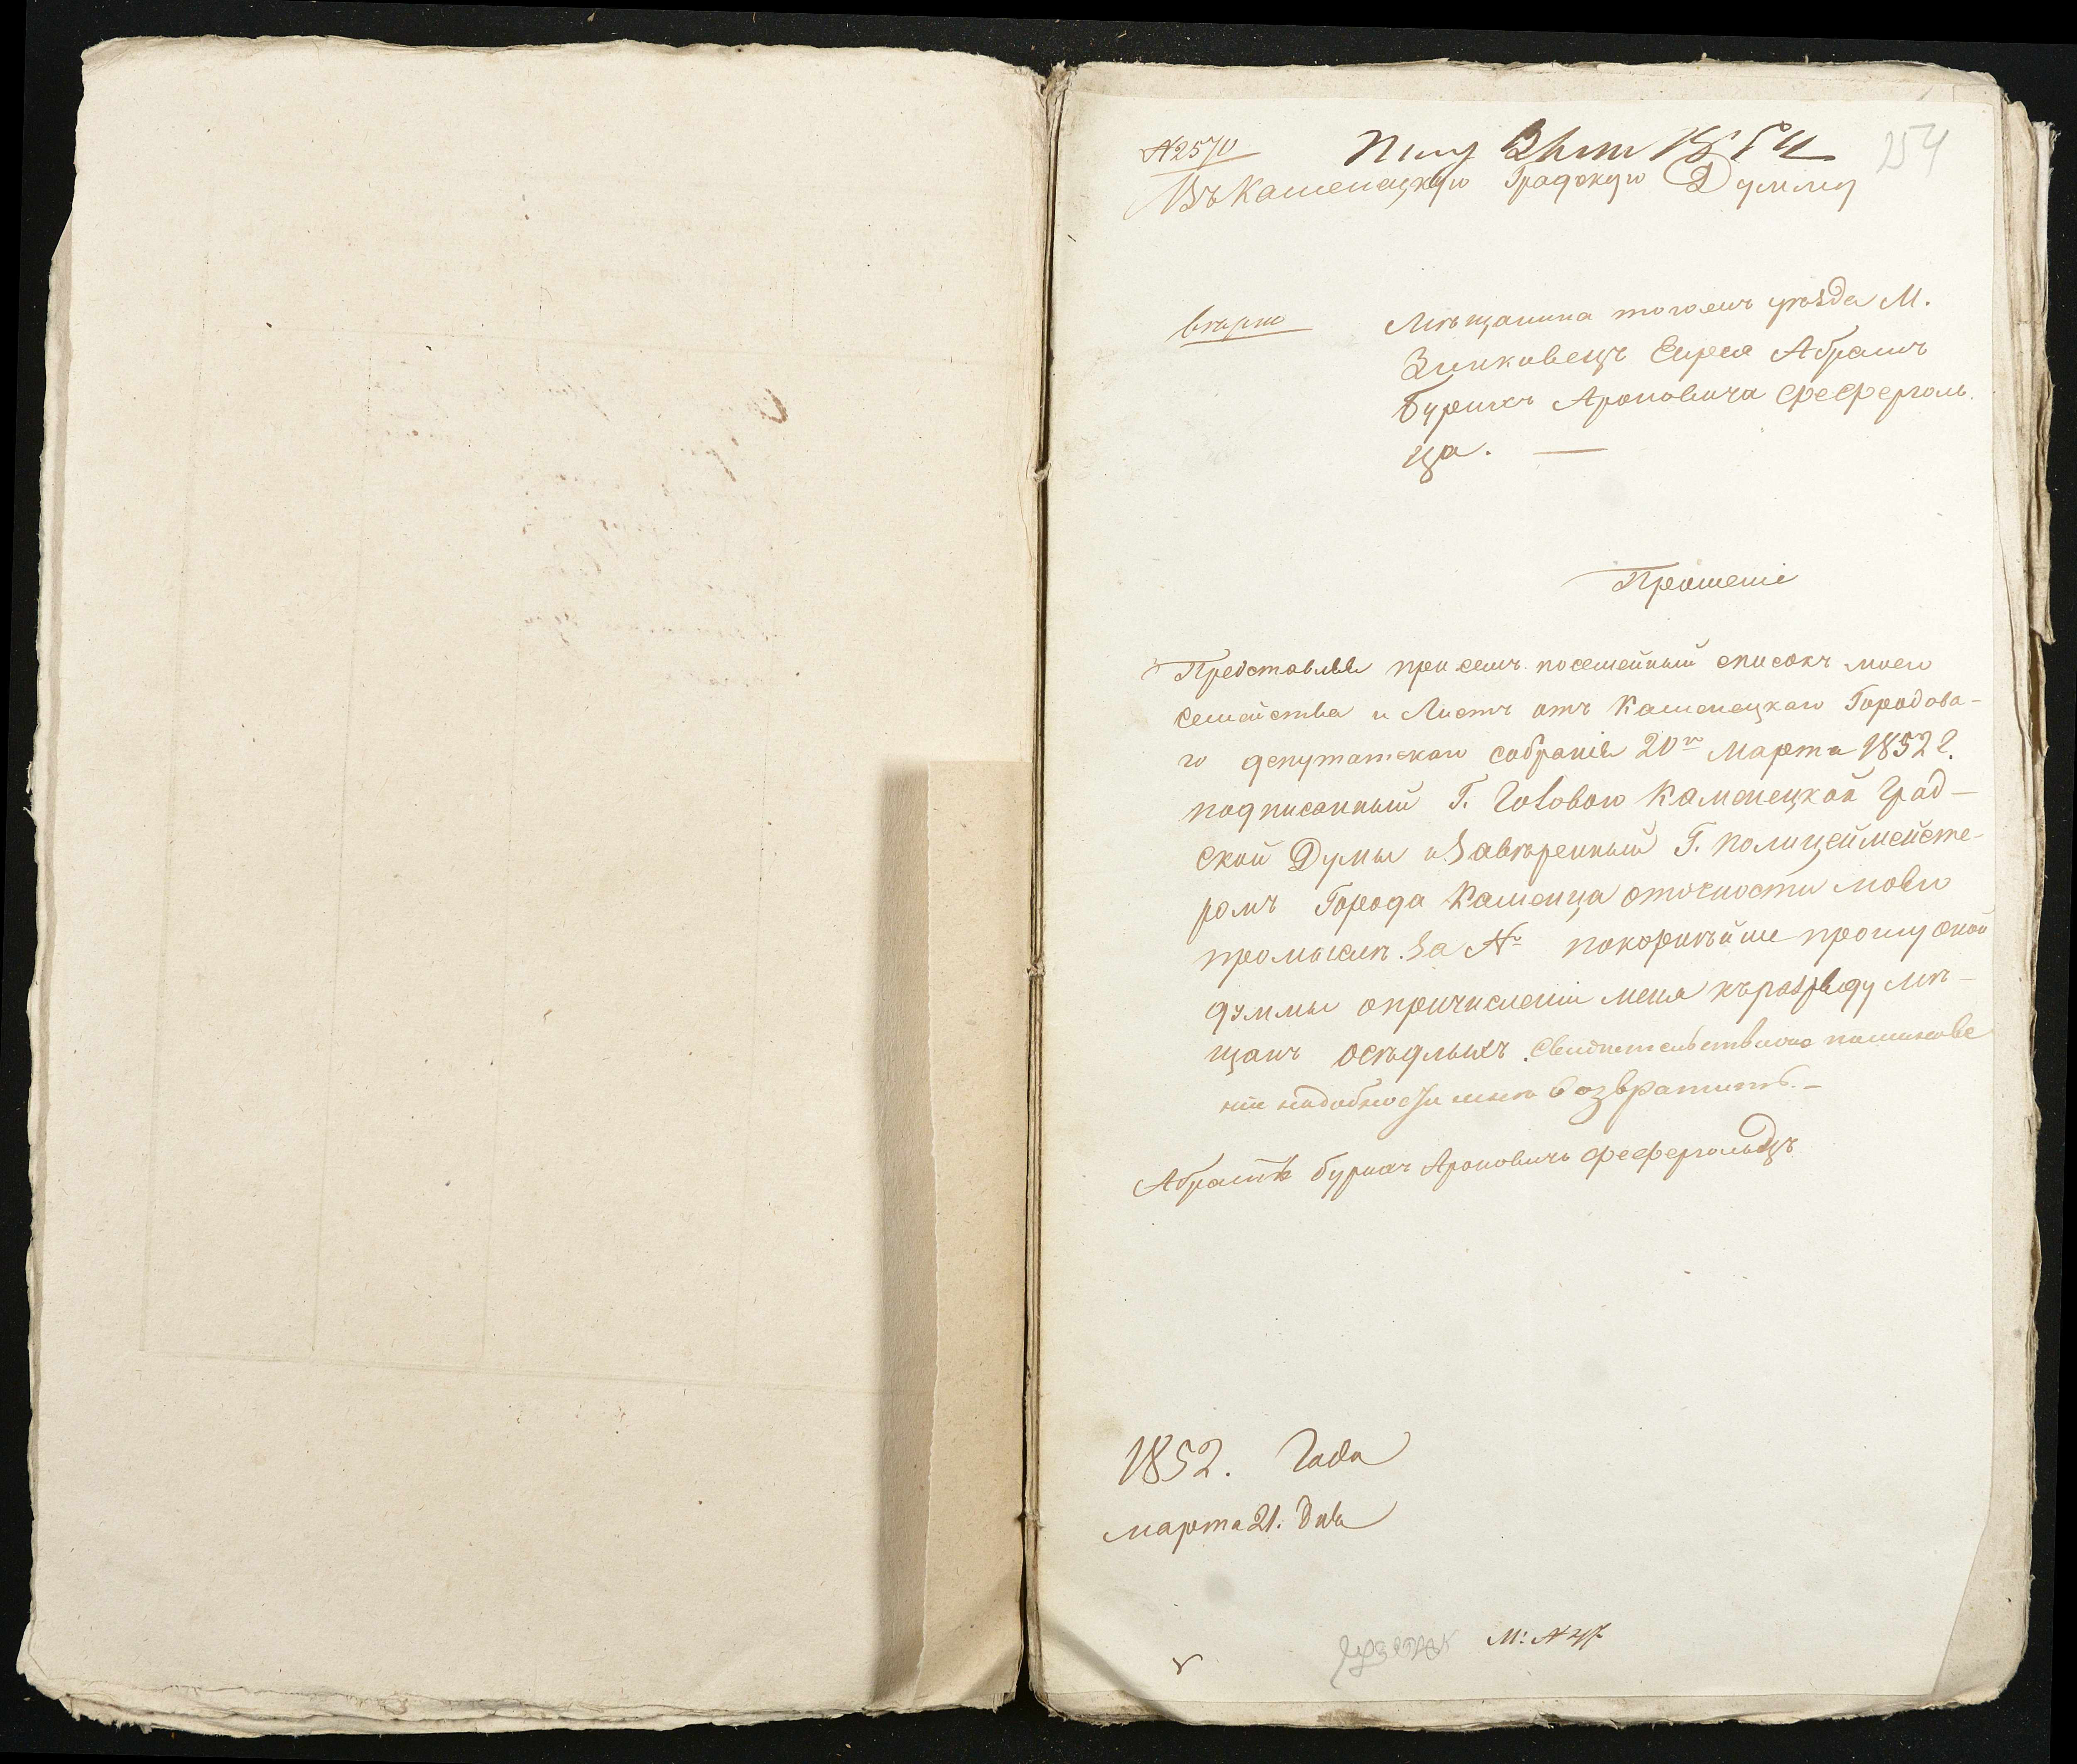 №2570
254
Въ Каменецкую Градскую Думму
вѣрно
Мѣщанина тогожъ уѣзда М.
Зинковецъ Еврея Абрамъ
Бурихъ Ароновича Феферголь
ца.
Прошеніе
Представляя при семъ посемейный списокъ моего
семейства и Листъ отъ Каменецкаго Городова-
го депутатскаго собранія 20го Марта 1852 г.
подписанный Г. Головою Каменецкой Град-
ской Думы и Завѣренный Г. Полицеймейсте-
ромъ Города Каменца о точности моего
промысла. За № покорнѣйше прошу оной
думмы о причисленіи меня къ разряду мѣ-
щанъ осѣдлыхъ. Свидѣтельство по минове
ніи надобности мнѣ возвратить.
Абрамъ Бурихъ Ароновичъ Фефергольцъ
1852. Года
марта 21. Дня